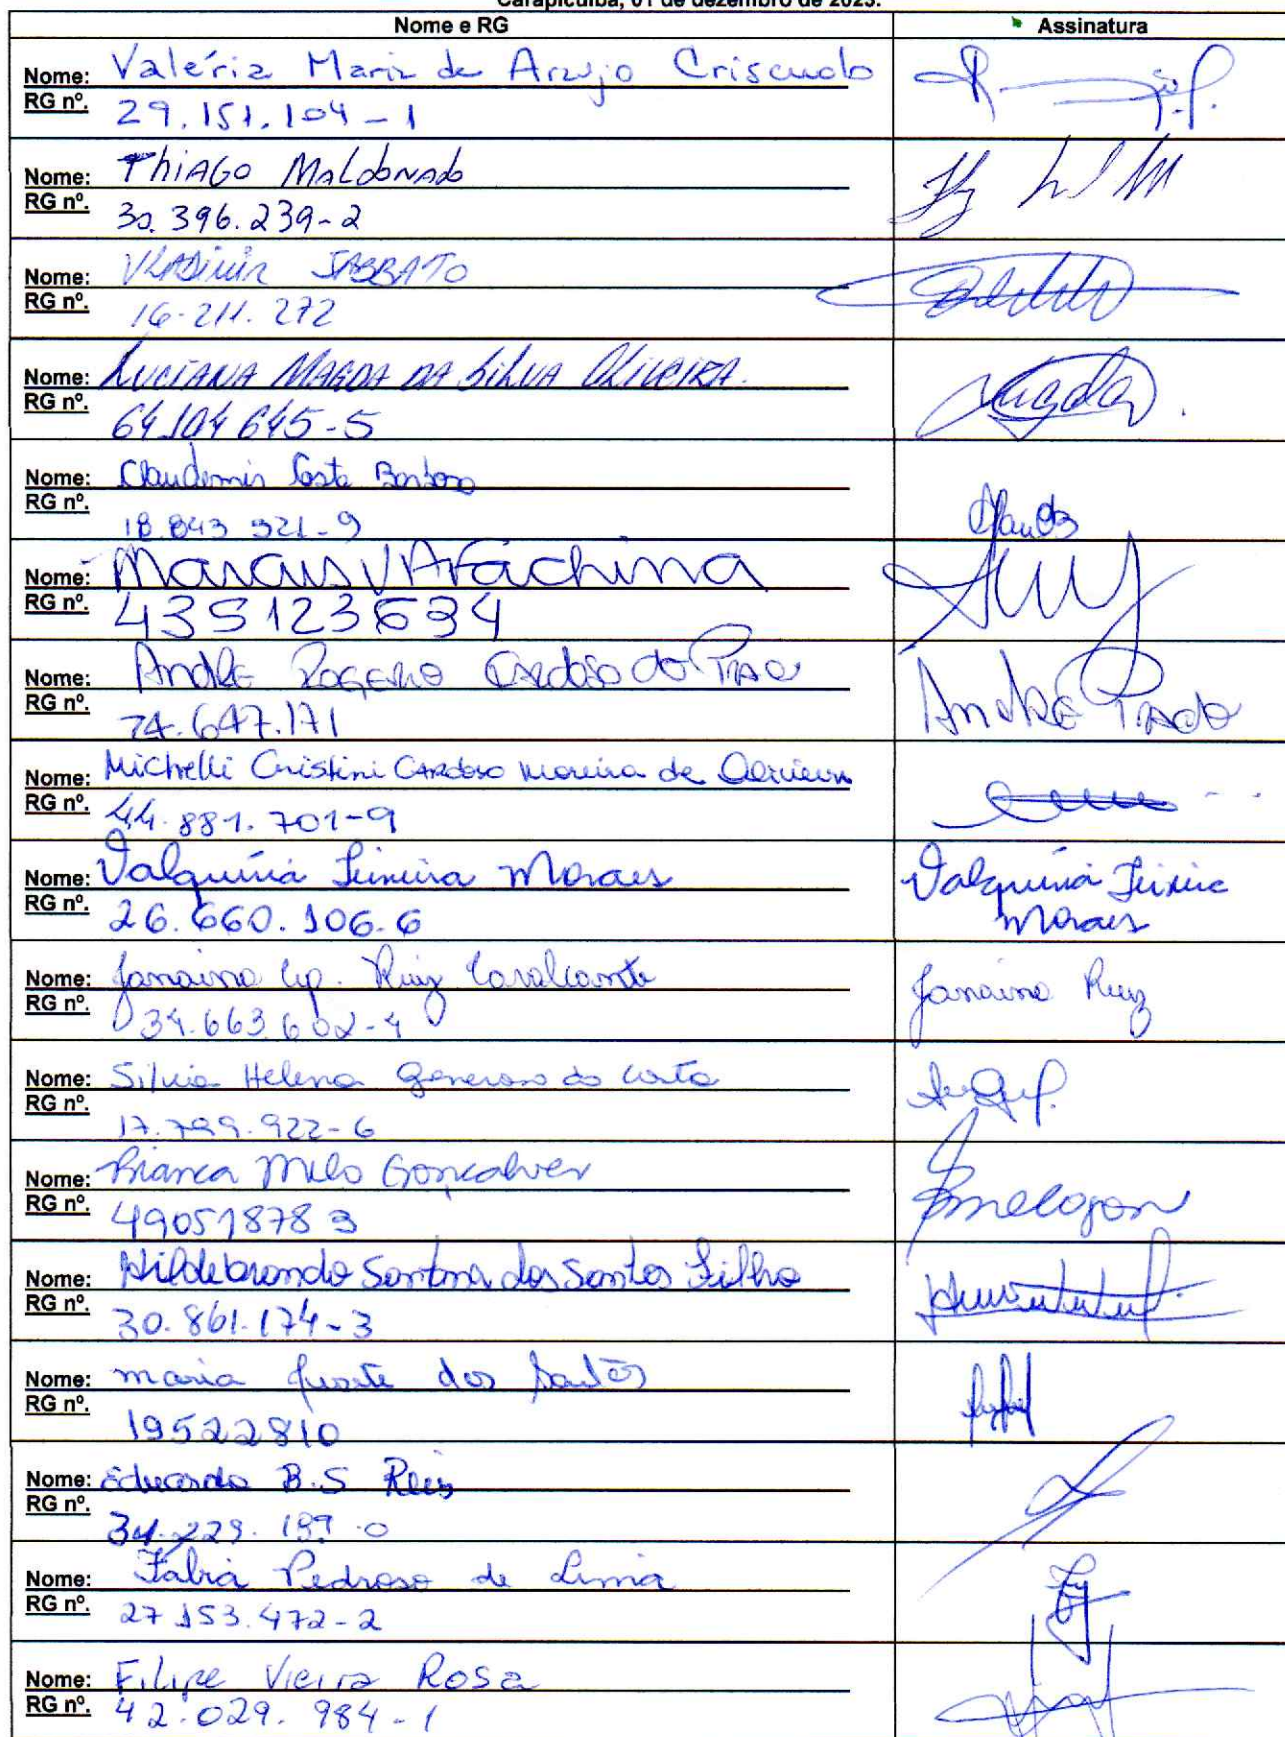 Carapicuíba, 01 de dezembro de 2023.
Nome e RG Assinatura
Nome: Valéria Maria de Araujo Criscuolo
RG nº. 29.151.104-1
Nome: Thiago Maldonado
RG nº. 30.396.239-2
Nome: Vladimir Sabbato
RG nº. 16.211.272
Nome: Luciana Magda da Silva Oliveira
RG nº. 64104645-5 Magda
Nome: Claudemir Costa Barbosa
RG nº. 18.843 921-9
Nome: Marcus V Afachina
RG nº. 435123634
Nome: André Rogerio Cardoso do Prado
RG nº. 24.647.171 André Prado
Nome: Michelli Cristini Cardoso Moreira de
RG nº. 44.881.701-9
Nome: Valquíria Teixeira Moraes Valquíria Teixeira
RG nº. 26.660.106.6 Moraes
Nome: Janaina Ap. Ruiz Cavalcante Janaina Ruiz
RG nº. 34.663.602-4
Nome: Silvia Helena Generoso da Costa
RG nº. 17.799.922-6
Nome: Bianca Melo Gonçalves
RG nº. 490518783 Bmelogon
Nome: Hildebrando Santana dos Santos Filho
RG nº. 30.861.174-3
Nome: maria dos Santos
RG nº. 19522810
Nome: Eduardo B.S Reis
RG nº. 34.229.199.0
Nome: Fabia Pedroso de Lima
RG nº. 27.153.472-2
Nome: Filipe Vieira Rosa
RG nº. 42.029.984-1